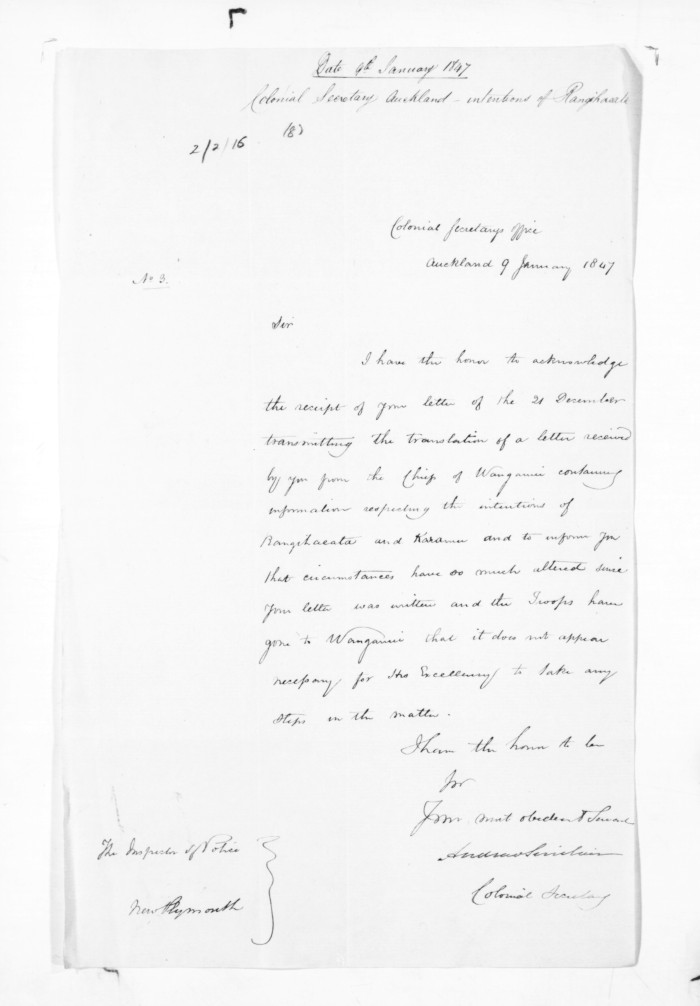 Date 9th January 1847
Colonial Secretary Auckland - intentions of Rangihaeata
183
2/2/16
Colonial Secretarys Office
Auckland 9 January 1847
No 3.
Sir
I have the honor to acknowledge
the receipt of your letter of the 21 December
transmitting the translation of a letter received
by you from the Chiefs of Wanganui containing
information respecting the intentions of
Rangihaeata and Karamu and to inform you
that circumstances have so much altered since
your letter was written and the Troops have
gone to Wanganui that it does not appear
necessary for His Excellency to take any
steps in the matter.
I have the honor to be
Sir
Your most obedient Servant
Andrew Sinclair
Colonial Secretary
The Inspector of Police
New Plymouth